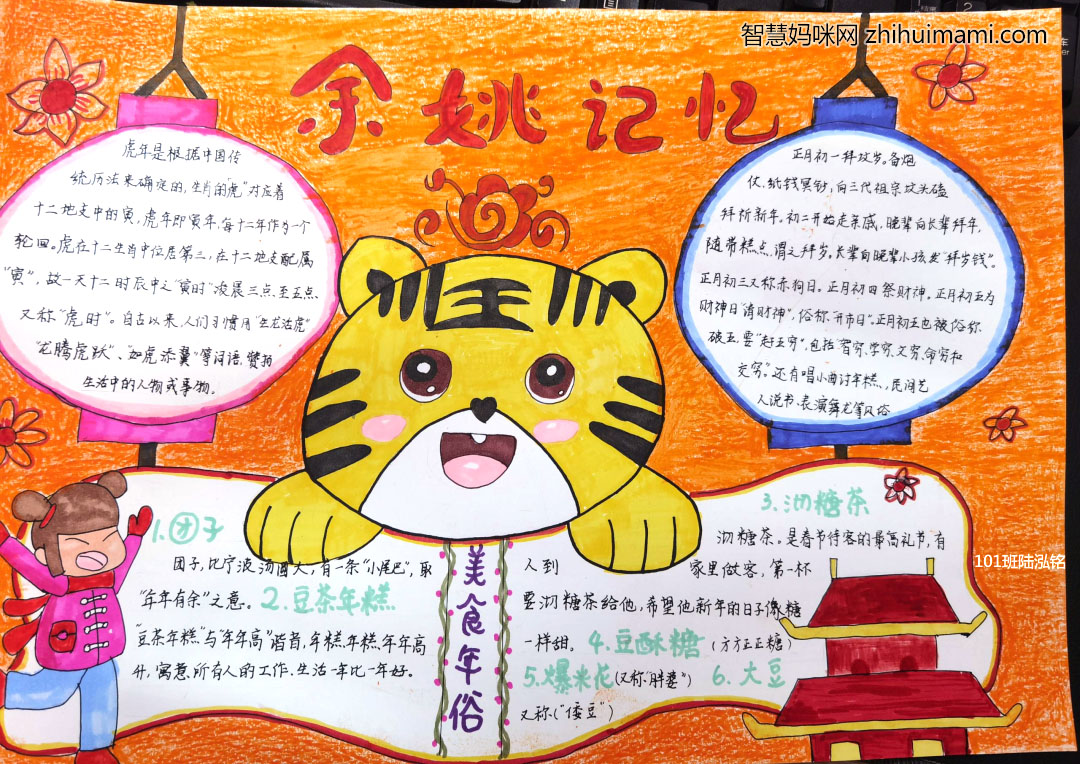 智慧妈咪网 zhihuimami.com
余姚记忆
虎年是根据中国传
统历法来确定的,生肖的"虎"对应着
十二地支中的寅,虎年即寅年,每十二年作为一个
轮回。虎在十二生肖中位居第三,在十二地支配属
"寅",故一天十二时辰中之"寅时"凌晨三点至五点
又称"虎时"。自古以来,人们习惯用"生龙活虎"
"龙腾虎跃"、"如虎添翼"等词语,赞扬
生活中的人物或事物。
正月初一拜坟岁。备烟
仗、纸钱冥钞,向三代祖宗坟头磕
拜祈新年。初二开始走亲戚,晚辈向长辈拜年,
随带糕点,谓之拜岁。长辈向晚辈小孩发"拜岁钱"。
正月初三又称赤狗日。正月初四祭财神。正月初五为
财神日"消财神",俗称"开市日"。正月初五也被俗称
破五,要"赶五穷",包括"智穷、学穷、文穷、命穷和
交穷"。还有唱小曲讨年糕,民间艺
人说书、表演舞龙等风俗
1.团子
团子,比宁波汤圆大,有一条"小尾巴",取
"年年有余"之意。2.豆茶年糕
"豆茶年糕"与"年年高"谐音,年糕年糕年年高
升,寓意所有人的工作、生活一年比一年好。
美食年俗
3.沏糖茶
沏糖茶。是春节待客的最高礼节,有
人到 家里做客,第一杯
要沏糖茶给他,希望他新年的日子像糖
一样甜。4.豆酥糖(方方正正糖)
5.爆米花(又称"胖婆")6.大豆
又称("倭豆")
101班陆泓铭